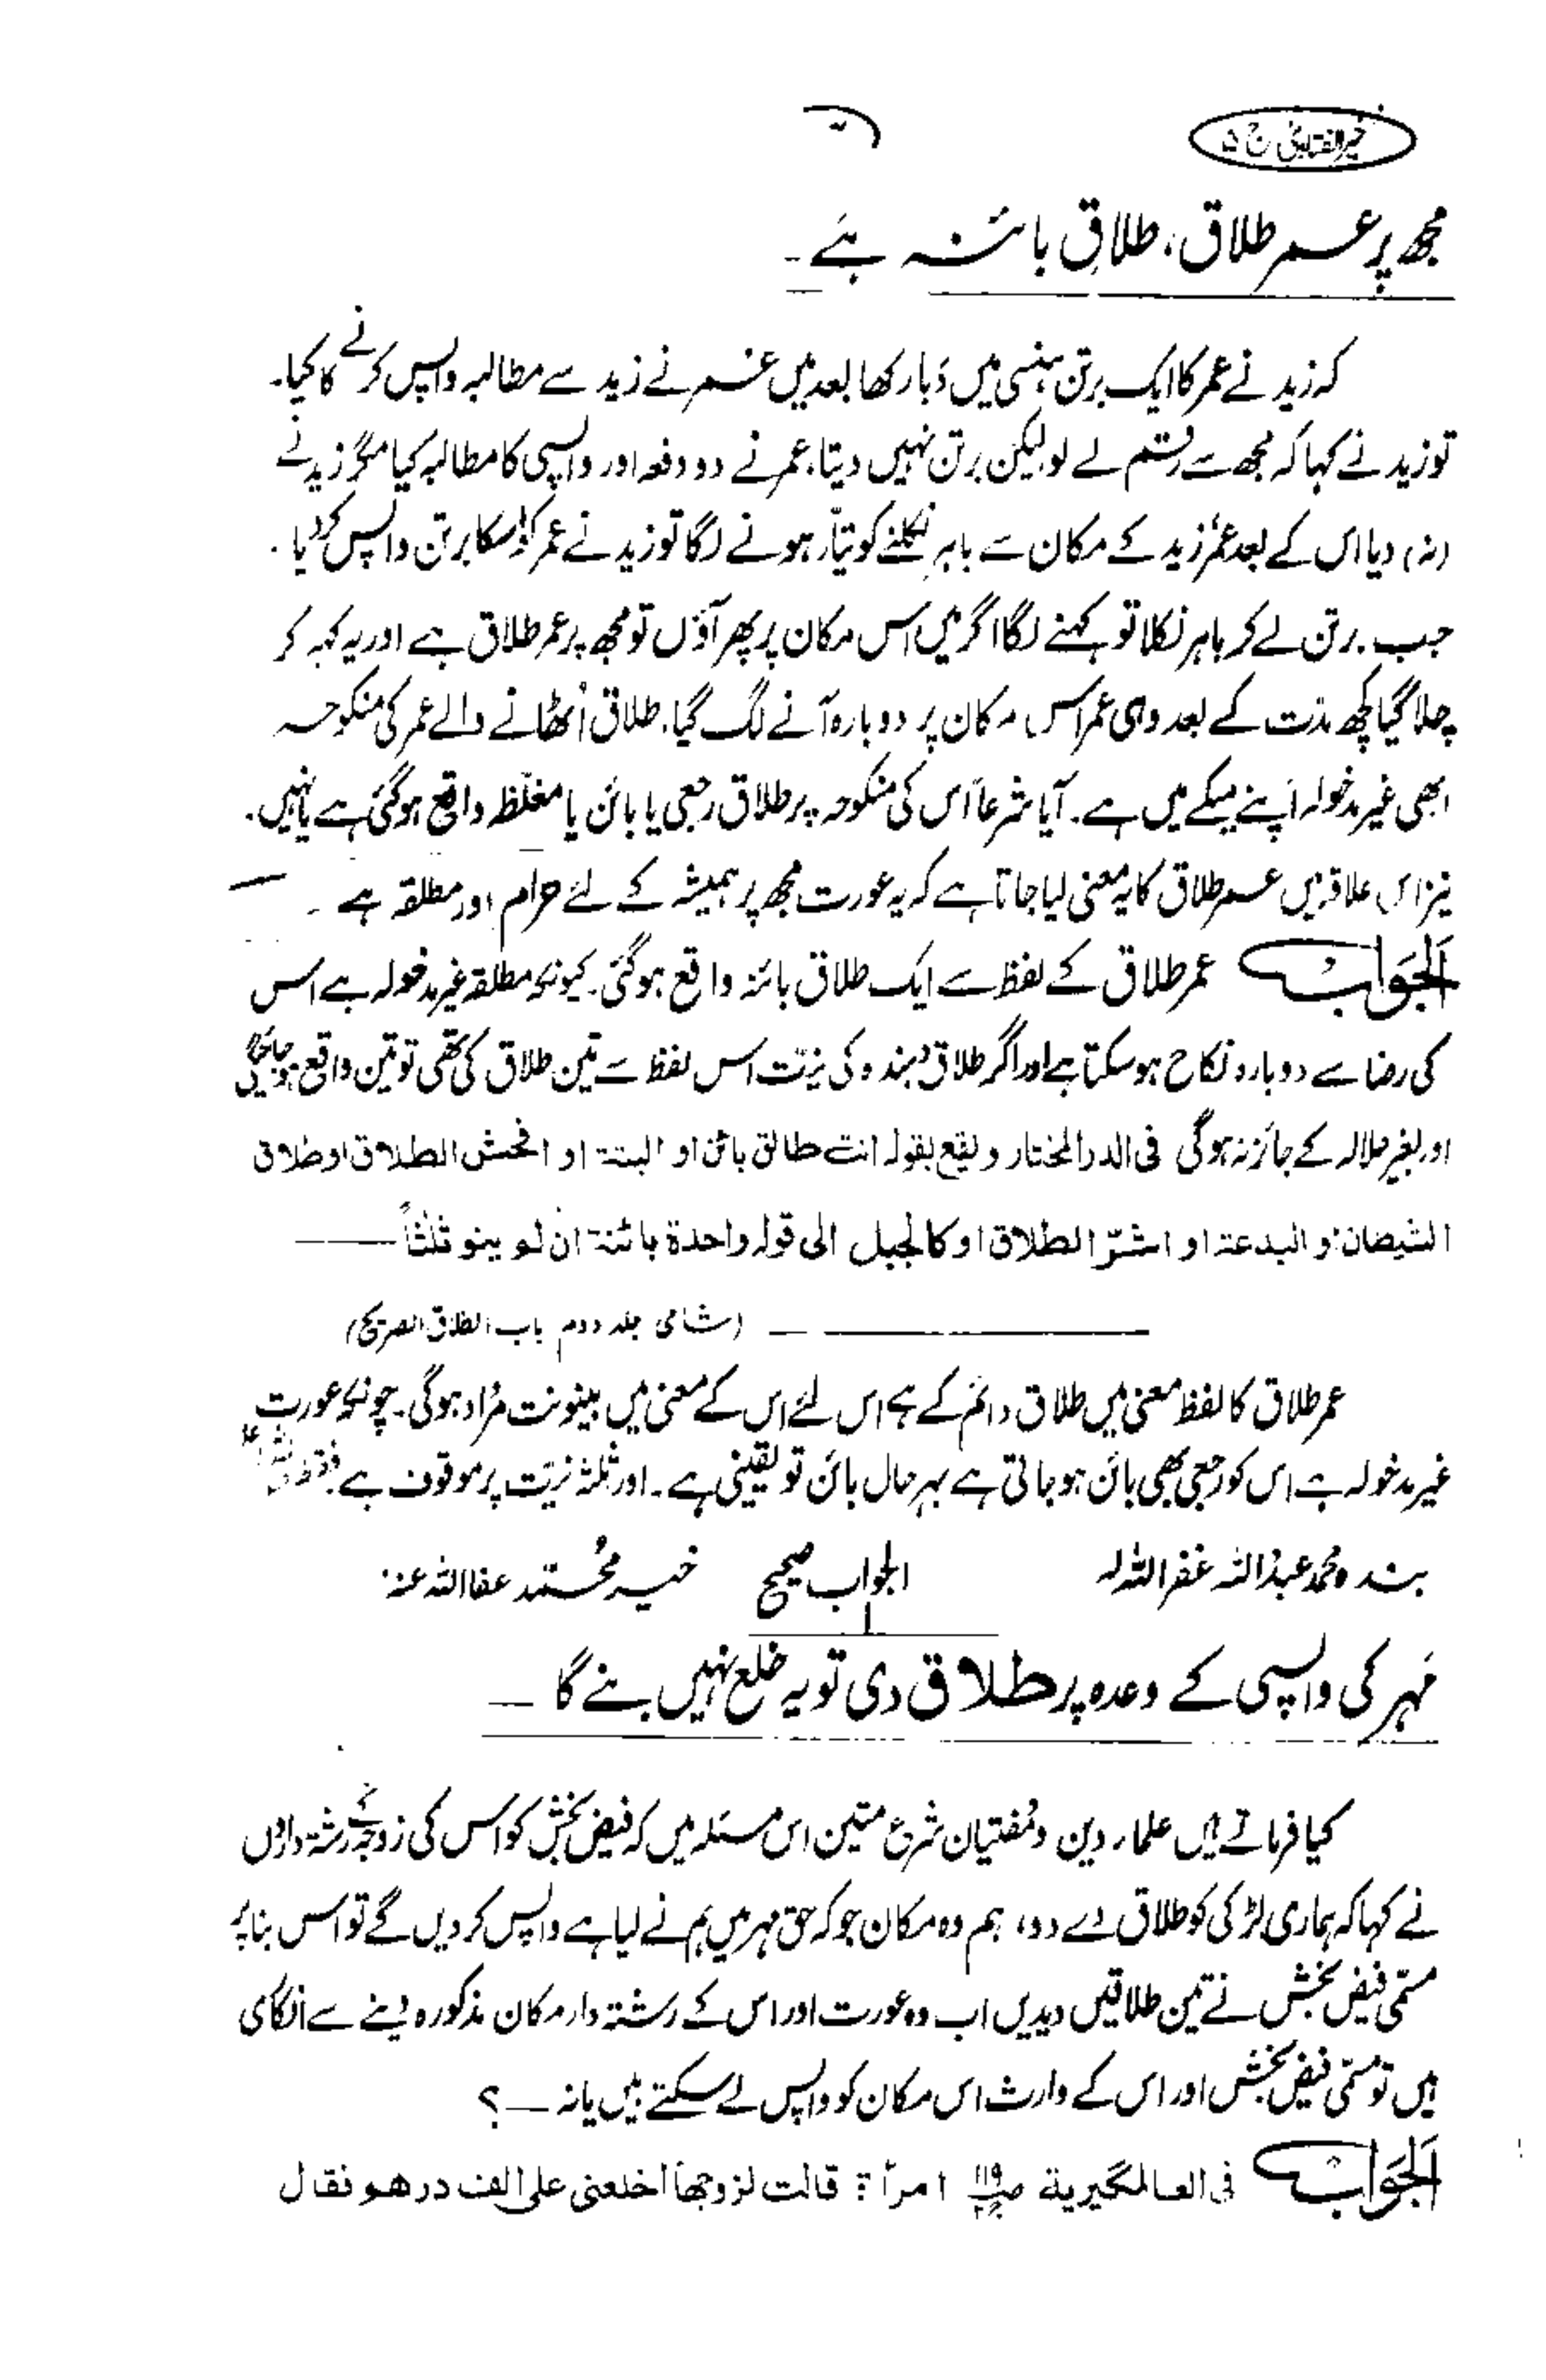 خیرالفتاویٰ ج ۵
مجھ پر عمر طلاق، طلاقِ بائنہ ہے۔
کہ زید نے عمر کا ایک برتن ہنسی میں دَبا رکھا بعد میں عمر نے زید سے مطالبہ واپس کرنے کا کیا۔
تو زید نے کہا کہ مجھ سے رقم لے لو لیکن برتن نہیں دیتا، عمر نے دو دفعہ اور واپسی کا مطالبہ کیا مگر زید نے
(نہ) دیا اس کے بعد عمر زید کے مکان سے باہر نکلنے کو تیّار ہونے لگا تو زید نے عمر کو اسکا برتن واپس کر دیا۔
جب برتن لے کر باہر نکلا تو کہنے لگا اگر میں اس مکان پر پھر آؤں تو مجھ پر عمر طلاق ہے اور یہ کہہ کر
چلا گیا کچھ مدت کے بعد وہی عمر اس مکان پر دوبارہ آنے لگ گیا۔ طلاق اُٹھانے والے عمر کی منکوحہ
ابھی غیر مدخولہ اپنے میکے میں ہے۔ آیا شرعاً اس کی منکوحہ پر طلاق رجعی یا بائن یا مغلّظ واقع ہو گئی ہے یا نہیں۔
نیز اس علاقہ میں عمر طلاق کا یہ معنی لیا جاتا ہے کہ یہ عورت مجھ پر ہمیشہ کے لئے حرام اور مطلقہ ہے ۔
اَلجَوَاب عمر طلاق کے لفظ سے ایک طلاق بائنہ واقع ہو گئی۔ کیونکہ مطلقہ غیر مدخولہ ہے اس
کی رضا سے دوبارہ نکاح ہو سکتا ہے اور اگر طلاق دہندہ کی نیّت اس لفظ سے تین طلاق کی تھی تو تین واقع ہو جائیں گی
اور بغیر حلالہ کے جائز نہ ہوگی فی الدر المختار و یقع بقولہ انت طالق بائن او البتة او افحش الطلاق او طلاق
الشیطان او البدعة او اشرّ الطلاق او کالجبل الی قولہ واحدة بائنة ان لم ینو ثلثاً
(شامی جلد دوم باب الطلاق الصریح)
عمر طلاق کا لفظ معنی میں طلاق دائم کے ہے اس لئے اس کے معنی میں بینونت مُراد ہوگی۔ چونکہ عورت
غیر مدخولہ ہے اس کو رجعی بھی بائن ہو جاتی ہے بہر حال بائن تو یقینی ہے۔ اور ثلثہ نیّت پر موقوف ہے فقط
بندہ محمد عبدُاللہ غفر اللہ لہ الجواب صحیح خیر محمّد عفا اللہ عنہ
مَہر کی واپسی کے وعدہ پر طلاق دی تو یہ خلع نہیں بنے گا
کیا فرماتے ہیں علمار دین و مُفتیان شرع متین اس مسئلہ میں کہ فیض بخش کو اس کی زوجہ کے رشتہ داروں
نے کہا کہ ہماری لڑکی کو طلاق دے دو، ہم وہ مکان جو کہ حق مہر میں ہم نے لیا ہے واپس کر دیں گے تو اس بنا پر
مسمّی فیض بخش نے تین طلاقیں دیدیں اب وہ عورت اور اس کے رشتہ دار مکان مذکورہ دینے سے انکاری
ہیں تو مسمّی فیض بخش اور اس کے وارث اس مکان کو واپس لے سکتے ہیں یا نہ ــ ؟
اَلجَوَاب فی العالمگیریة ص ۱۱۹ امرأة قالت لزوجھا اخلعنی علی الف درھم فقال